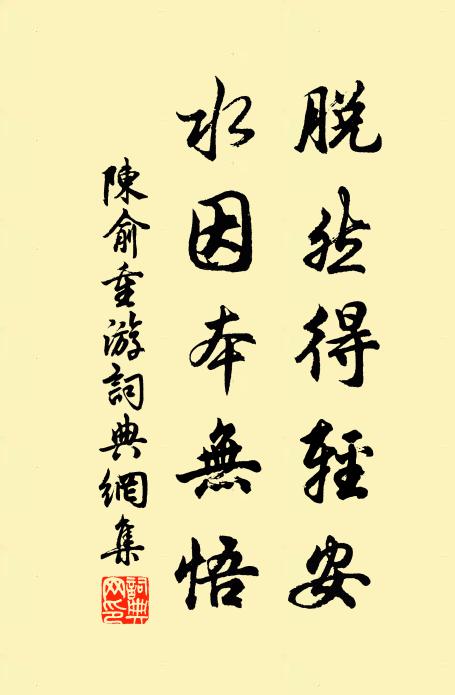 脫然得輕安
水因本無悟
陳俞重游詞典網集
詞典网印